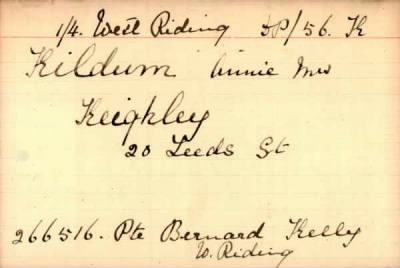 1/4. West Riding DP/56. K
Kildum Annie Mrs
Keighley
20 Leeds St
266516. Pte Bernard Kelly
W. Riding